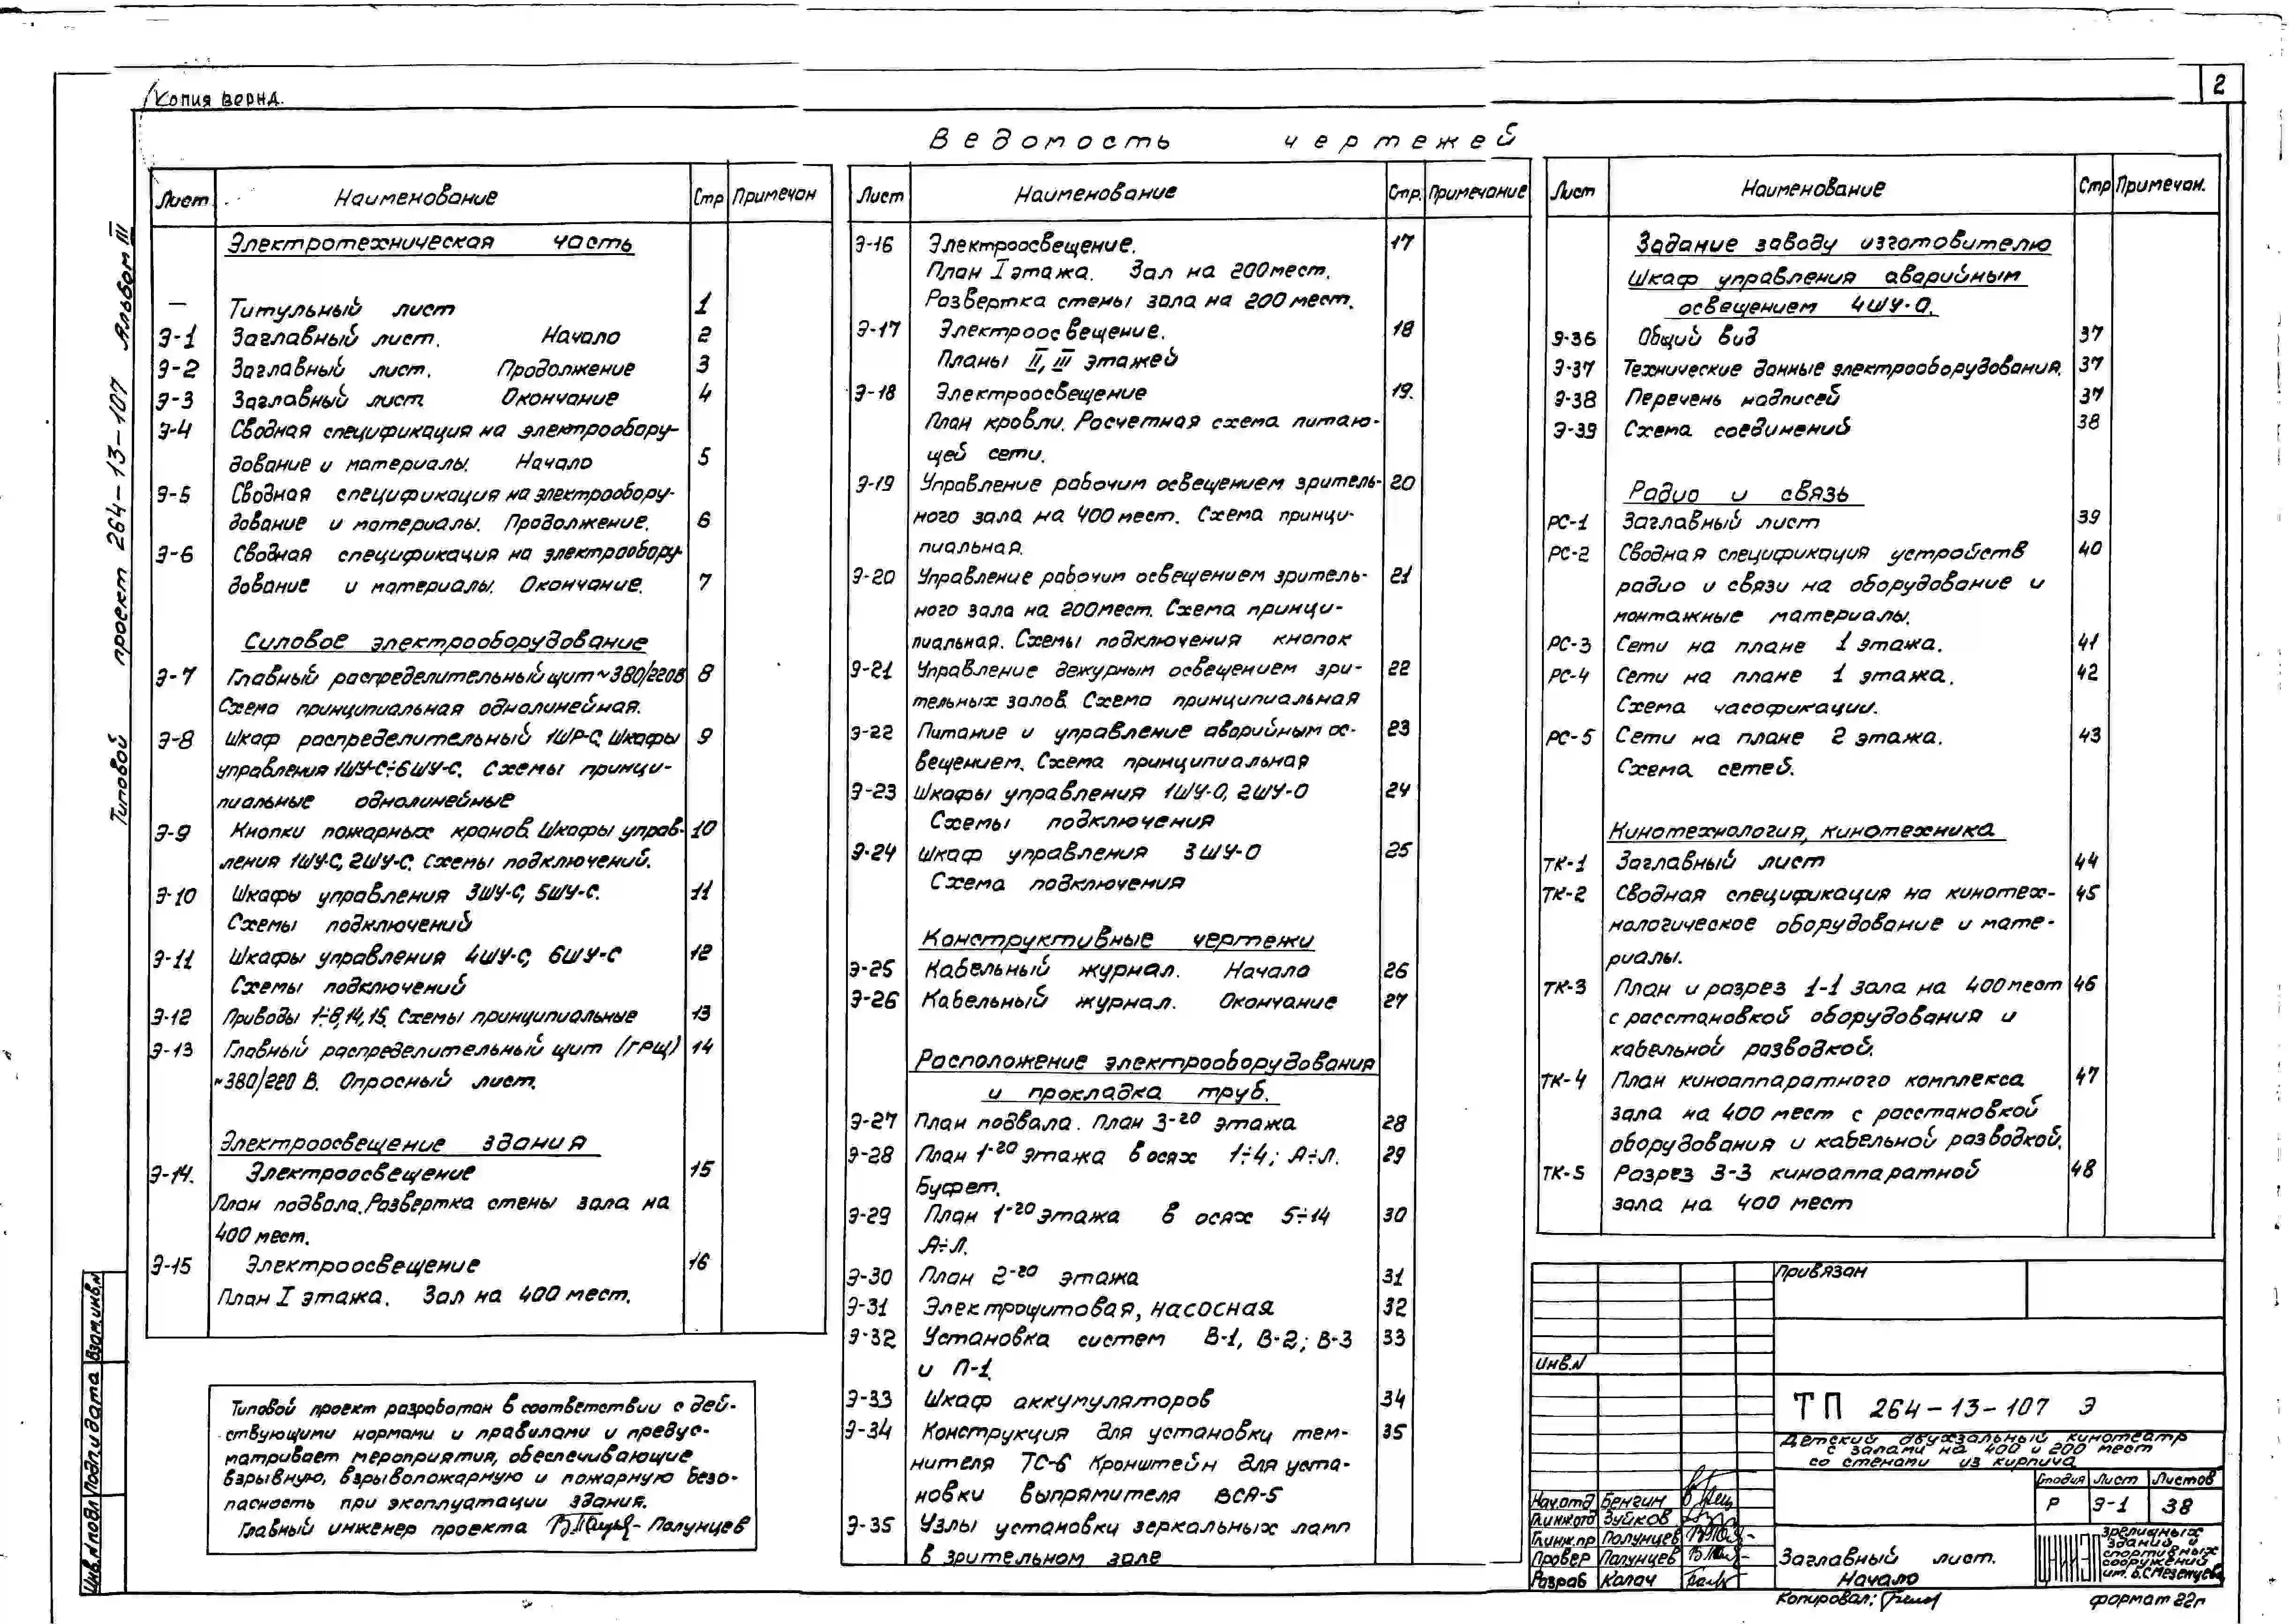 2
Копия верна.
Типовой проект 264-13-107 Альбом III
Ведомость чертежей
Лист Наименование Стр Примечан
Электротехническая часть
— Титульный лист 1
Э-1 Заглавный лист. Начало 2
Э-2 Заглавный лист. Продолжение 3
Э-3 Заглавный лист. Окончание 4
Э-4 Сводная спецификация на электрообору-
дование и материалы. Начало 5
Э-5 Сводная спецификация на электрообору-
дование и материалы. Продолжение. 6
Э-6 Сводная спецификация на электрообору-
дование и материалы. Окончание. 7
Силовое электрооборудование
Э-7 Главный распределительный щит ~380/220В 8
Схема принципиальная однолинейная.
Э-8 Шкаф распределительный 1ШР-С. Шкафы 9
управления 1ШУ-С÷6ШУ-С. Схемы принци-
пиальные однолинейные
Э-9 Кнопки пожарных кранов. Шкафы управ- 10
ления 1ШУ-С, 2ШУ-С. Схемы подключений.
Э-10 Шкафы управления 3ШУ-С, 5ШУ-С. 11
Схемы подключений
Э-11 Шкафы управления 4ШУ-С, 6ШУ-С 12
Схемы подключений
Э-12 Приводы 1÷8,14,15. Схемы принципиальные 13
Э-13 Главный распределительный щит (ГРЩ) 14
~380/220 В. Опросный лист.
Электроосвещение здания
Э-14. Электроосвещение 15
План подвала. Развертка стены зала на
400 мест.
Э-15 Электроосвещение 16
План I этажа. Зал на 400 мест.
Типовой проект разработан в соответствии с дей-
ствующими нормами и правилами и предус-
матривает мероприятия, обеспечивающие
взрывную, взрывопожарную и пожарную безо-
пасность при эксплуатации здания.
Главный инженер проекта Палунцев
Лист Наименование Стр. Примечание
Э-16 Электроосвещение. 17
План I этажа. Зал на 200 мест.
Развертка стены зала на 200 мест.
Э-17 Электроосвещение. 18
Планы II, III этажей
Э-18 Электроосвещение 19.
План кровли. Расчетная схема питаю-
щей сети.
Э-19 Управление рабочим освещением зритель- 20
ного зала на 400 мест. Схема принци-
пиальная.
Э-20 Управление рабочим освещением зритель- 21
ного зала на 200 мест. Схема принци-
пиальная. Схемы подключения кнопок
Э-21 Управление дежурным освещением зри- 22
тельных залов. Схема принципиальная
Э-22 Питание и управление аварийным ос- 23
вещением. Схема принципиальная
Э-23 Шкафы управления 1ШУ-О, 2ШУ-О 24
Схемы подключения
Э-24 Шкаф управления 3ШУ-О 25
Схема подключения
Конструктивные чертежи
Э-25 Кабельный журнал. Начало 26
Э-26 Кабельный журнал. Окончание 27
Расположение электрооборудования
и прокладка труб.
Э-27 План подвала. План 3-го этажа 28
Э-28 План 1-го этажа в осях 1÷4; А÷Л. 29
Буфет.
Э-29 План 1-го этажа в осях 5÷14 30
А÷Л.
Э-30 План 2-го этажа 31
Э-31 Электрощитовая, насосная 32
Э-32 Установка систем В-1, В-2; В-3 33
и П-1.
Э-33 Шкаф аккумуляторов 34
Э-34 Конструкция для установки тем- 35
нителя ТС-6 Кронштейн для уста-
новки выпрямителя ВСА-5
Э-35 Узлы установки зеркальных ламп
в зрительном зале
Лист Наименование Стр Примечан.
Задание заводу изготовителю
Шкаф управления аварийным
освещением 4ШУ-О.
Э-36 Общий вид 37
Э-37 Технические данные электрооборудования. 37
Э-38 Перечень надписей 37
Э-39 Схема соединений 38
Радио и связь
РС-1 Заглавный лист 39
РС-2 Сводная спецификация устройств 40
радио и связи на оборудование и
монтажные материалы.
РС-3 Сети на плане 1 этажа. 41
РС-4 Сети на плане 1 этажа. 42
Схема часофикации.
РС-5 Сети на плане 2 этажа. 43
Схема сетей.
Кинотехнология, кинотехника
ТК-1 Заглавный лист 44
ТК-2 Сводная спецификация на кинотех- 45
нологическое оборудование и мате-
риалы.
ТК-3 План и разрез 1-1 зала на 400 мест 46
с расстановкой оборудования и
кабельной разводкой.
ТК-4 План киноаппаратного комплекса 47
зала на 400 мест с расстановкой
оборудования и кабельной разводкой.
ТК-5 Разрез 3-3 киноаппаратной 48
зала на 400 мест
Привязан
Инв.N
ТП 264-13-107 Э
Детский двухзальный кинотеатр
с залами на 400 и 200 мест
со стенами из кирпича
Стадия Лист Листов
Р Э-1 38
Нач.отд Бенгин
Гл.инж.отд Зуйков
Гл.инж.пр Палунцев
Провер Палунцев
Разраб Калач
Заглавный лист.
Начало
ЦНИИЭП
зрелищных
зданий и
спортивных
сооружений
им. Б.С.Мезенцева
Копировал:
формат 22г
Инв.N подл Подп. и дата Взам.инв.N